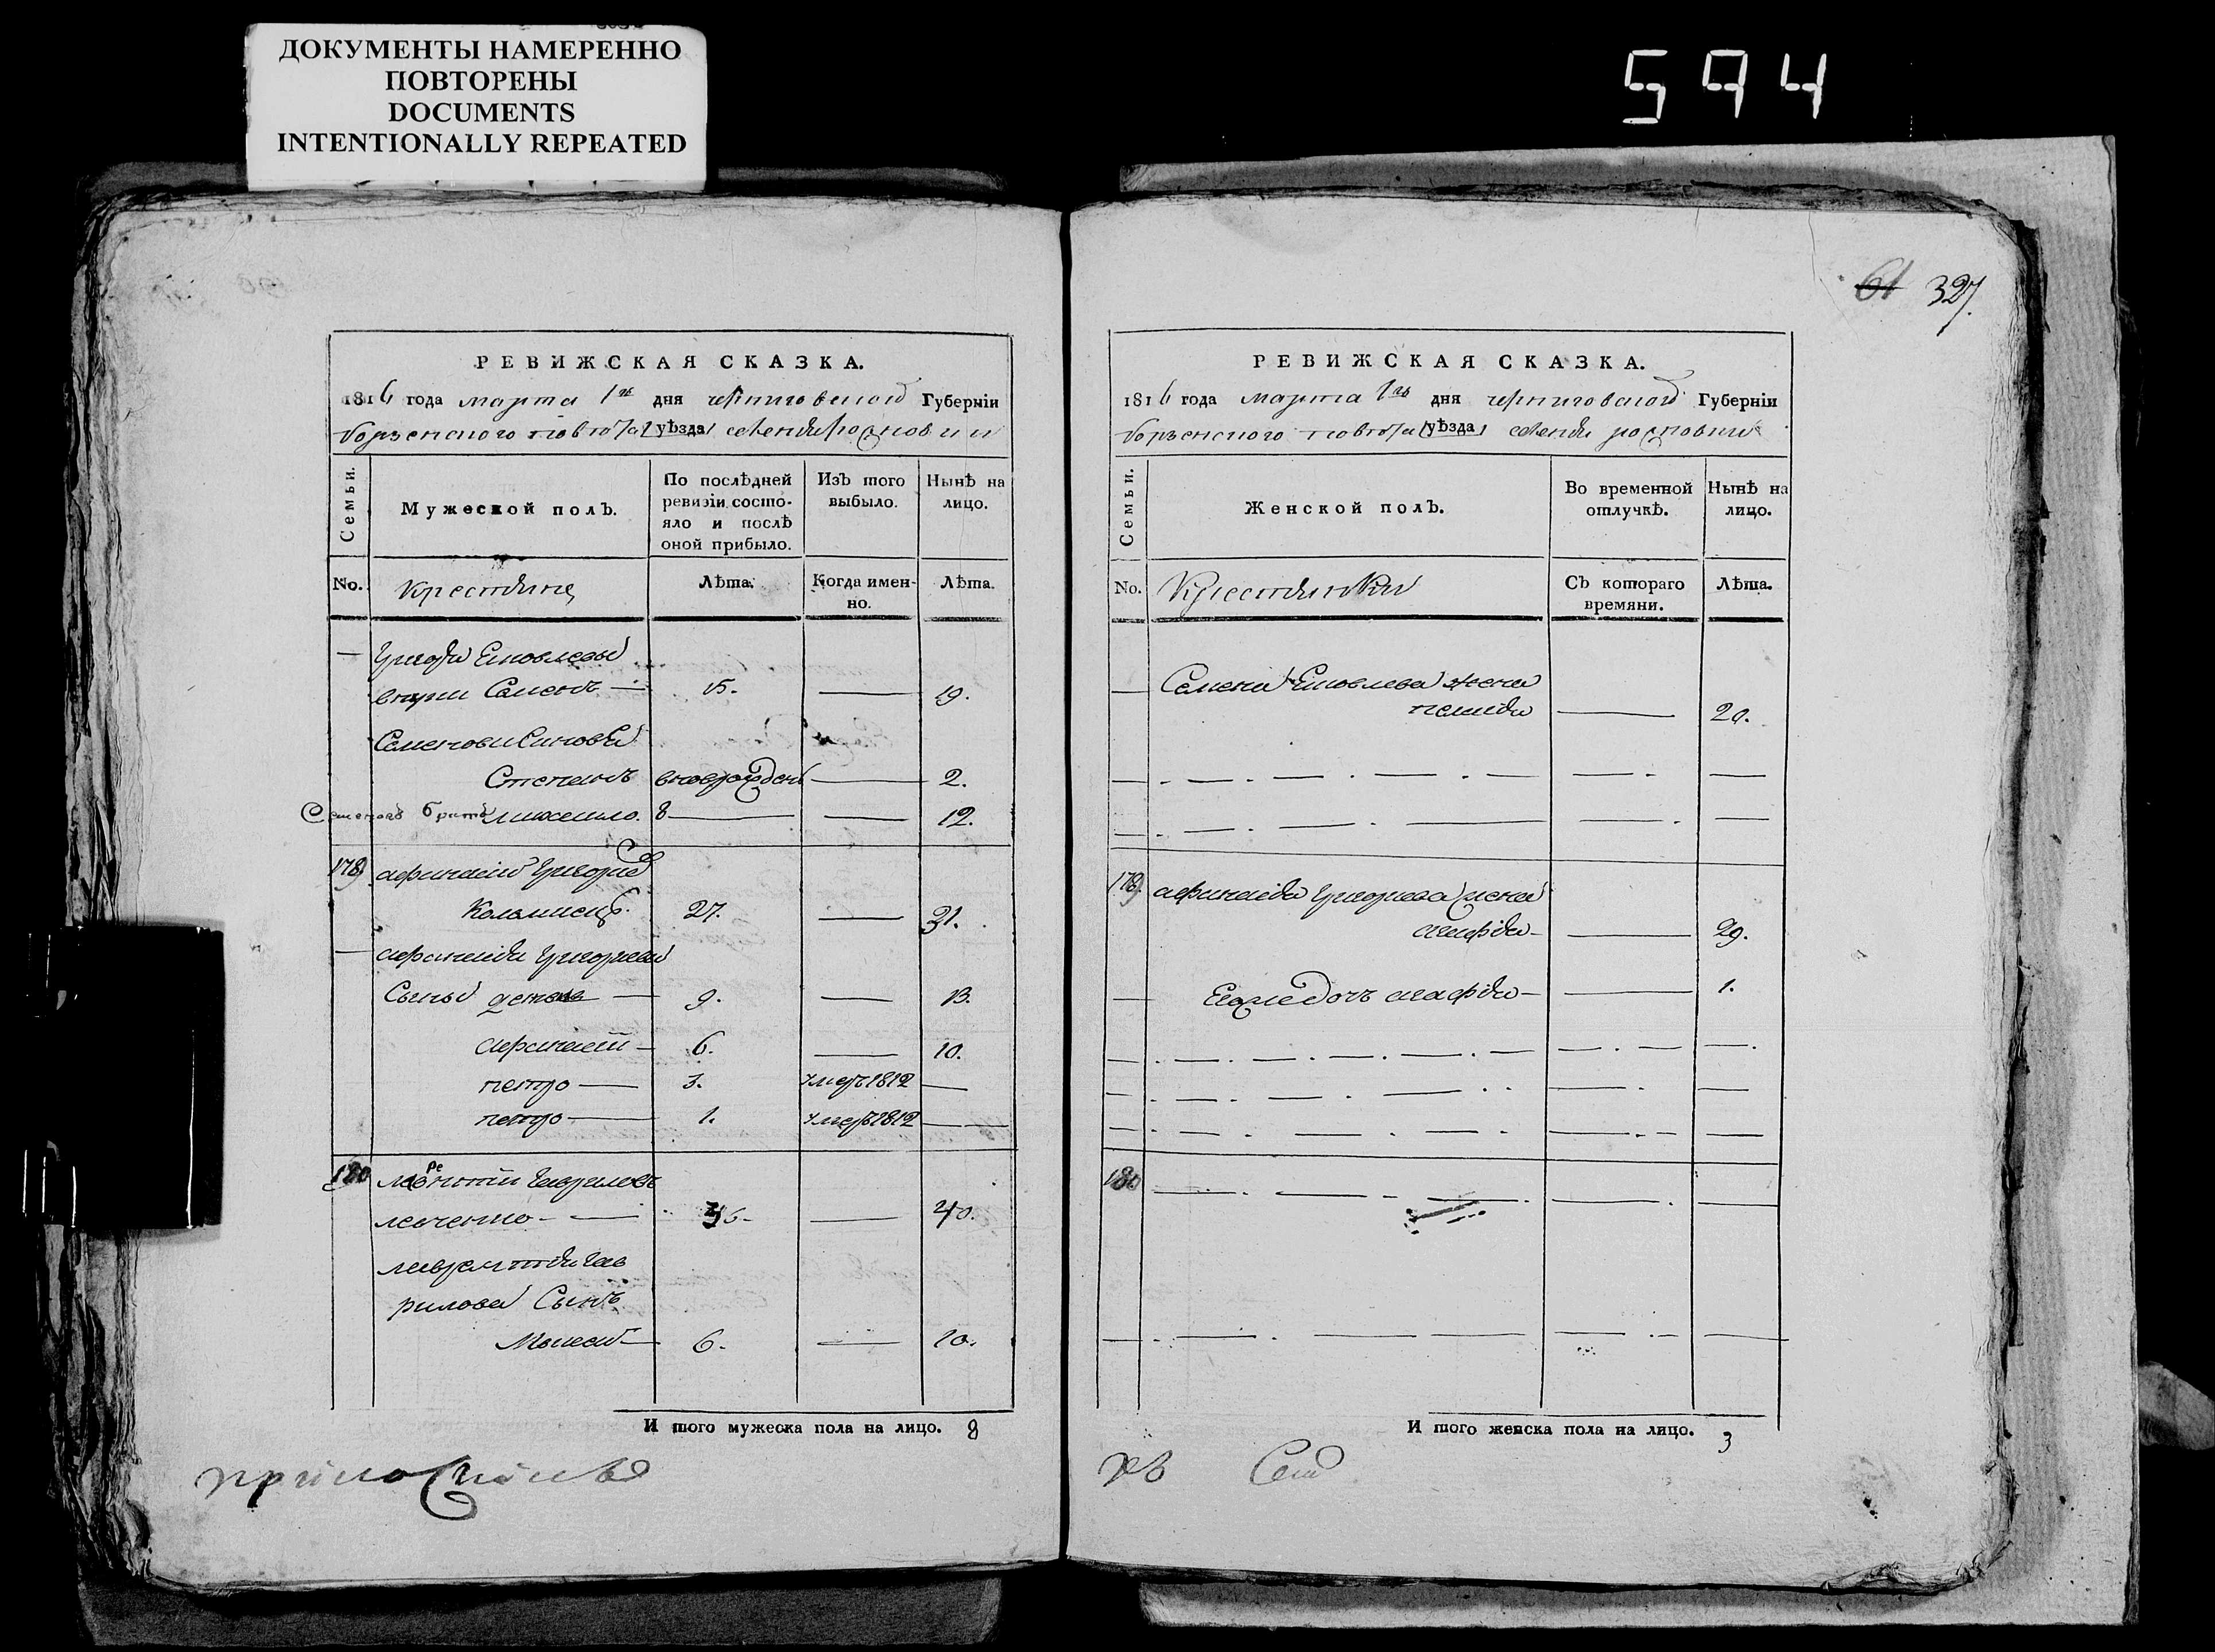 ДОКУМЕНТЫ НАМЕРЕННО
ПОВТОРЕНЫ
DOCUMENTS
INTENTIONALLY REPEATED
594
РЕВИЖСКАЯ СКАЗКА.
1816 года марта 1го дня черниговской Губерніи
борзенского повѣта уѣзда
Семьи.
Мужеской полъ.
По послѣдней ревизіи состо-
яло и послѣ
оной прибыло.
Изъ того
выбыло.
Нынѣ на
лицо.
No.
Крестяне
Лѣта.
Когда имен-
но.
Лѣта.
— Григория Яковлева
внуки Семенъ — 15. — 19.
Семенови Синовья
Степанъ вноврожденъ — 2.
Семеновъ братъ 8 — — 12.
179 афанасий Григориев
27. — 31.
— афанасия Григориева
Сыны — 9. — 13.
афанасий — 6. — 10.
петро — 3. умеръ 1812 —
петро — 1. умеръ 1812 —
180 лаврентий гавриловъ
левченко — 36. — 40.
лаврентия гав
рилова Сынъ
Моисей — 6. — 10.
И того мужеска пола на лицо. 8
61 327.
РЕВИЖСКАЯ СКАЗКА.
1816 года марта 1го дня черниговской Губерніи
борзенского повѣта уѣзда
Семьи.
Женской полъ.
Во временной
отлучкѣ.
Нынѣ на
лицо.
No.
Крестянки
Съ котораго
времяни.
Лѣта.
— Семена Яковлева жена
— 20.
179. афанасия Григориева жена
агафия — — 29.
— Его же дочь агафия — — 1.
180
И того женска пола на лицо. 3